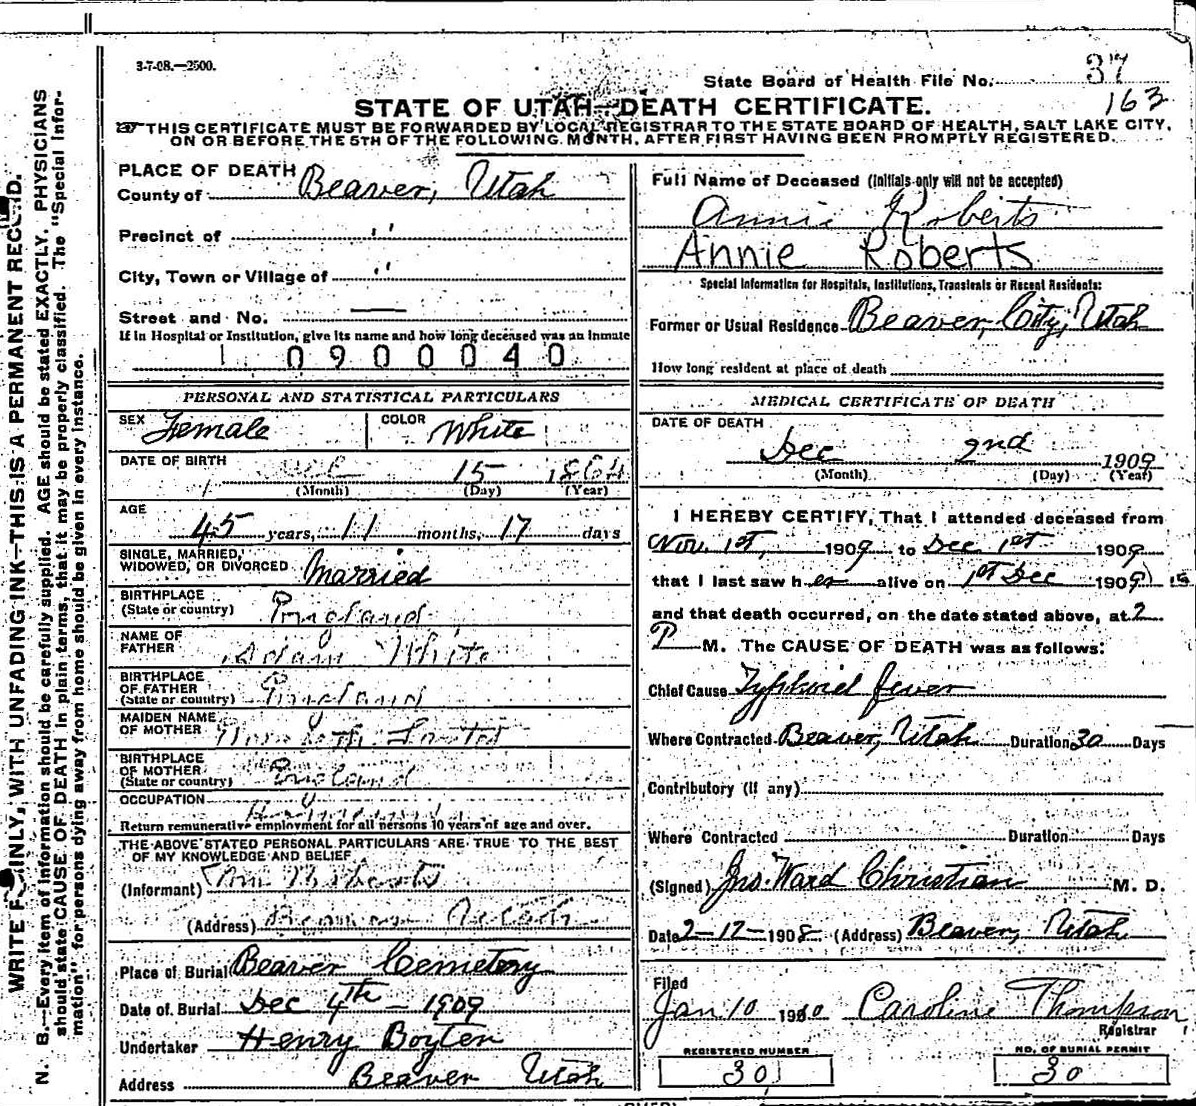 3-7-08.—2500.
State Board of Health File No. 37
163
STATE OF UTAH—DEATH CERTIFICATE.
☞ THIS CERTIFICATE MUST BE FORWARDED BY LOCAL REGISTRAR TO THE STATE BOARD OF HEALTH, SALT LAKE CITY,
ON OR BEFORE THE 5TH OF THE FOLLOWING MONTH, AFTER FIRST HAVING BEEN PROMPTLY REGISTERED.
WRITE PLAINLY, WITH UNFADING INK—THIS IS A PERMANENT RECORD.
N. B.—Every item of information should be carefully supplied. AGE should be stated EXACTLY. PHYSICIANS
should state CAUSE OF DEATH in plain terms, that it may be properly classified. The "Special Infor-
mation" for persons dying away from home should be given in every instance.
PLACE OF DEATH
County of Beaver, Utah
Precinct of " "
City, Town or Village of " "
Street and No. —
If in Hospital or Institution, give its name and how long deceased was an inmate
1 0 9 0 0 0 4 0
PERSONAL AND STATISTICAL PARTICULARS
SEX Female COLOR White
DATE OF BIRTH 15 1864
(Month) (Day) (Year)
AGE
45 years, 11 months, 17 days
SINGLE, MARRIED,
WIDOWED, OR DIVORCED Married
BIRTHPLACE
(State or country) England
NAME OF
FATHER White
BIRTHPLACE
OF FATHER
(State or country) England
MAIDEN NAME
OF MOTHER
BIRTHPLACE
OF MOTHER
(State or country) England
OCCUPATION
Return remunerative employment for all persons 10 years of age and over.
THE ABOVE STATED PERSONAL PARTICULARS ARE TRUE TO THE BEST
OF MY KNOWLEDGE AND BELIEF
(Informant) Wm Roberts
(Address) Beaver Utah
Place of Burial Beaver Cemetery
Date of Burial Dec 4th — 1909
Undertaker Henry Boyter
Address Beaver Utah
Full Name of Deceased (Initials only will not be accepted)
Annie Roberts
Annie Roberts
Special Information for Hospitals, Institutions, Transients or Recent Residents:
Former or Usual Residence Beaver, City, Utah
How long resident at place of death
MEDICAL CERTIFICATE OF DEATH
DATE OF DEATH
Dec 2nd 1909
(Month) (Day) (Year)
I HEREBY CERTIFY, That I attended deceased from
Nov. 1st, 1909 to Dec 1st 1909
that I last saw her alive on 1st Dec 1909
and that death occurred, on the date stated above, at 2
P M. The CAUSE OF DEATH was as follows:
Chief Cause Typhoid fever
Where Contracted Beaver, Utah Duration 30 Days
Contributory (if any)
Where Contracted Duration Days
(Signed) Jno. Ward Christian M. D.
Date 2-12-1908 (Address) Beaver, Utah
Filed
Jan 10 1910 Caroline Thompson
Registrar
REGISTERED NUMBER
30
NO. OF BURIAL PERMIT
30
(OVER)